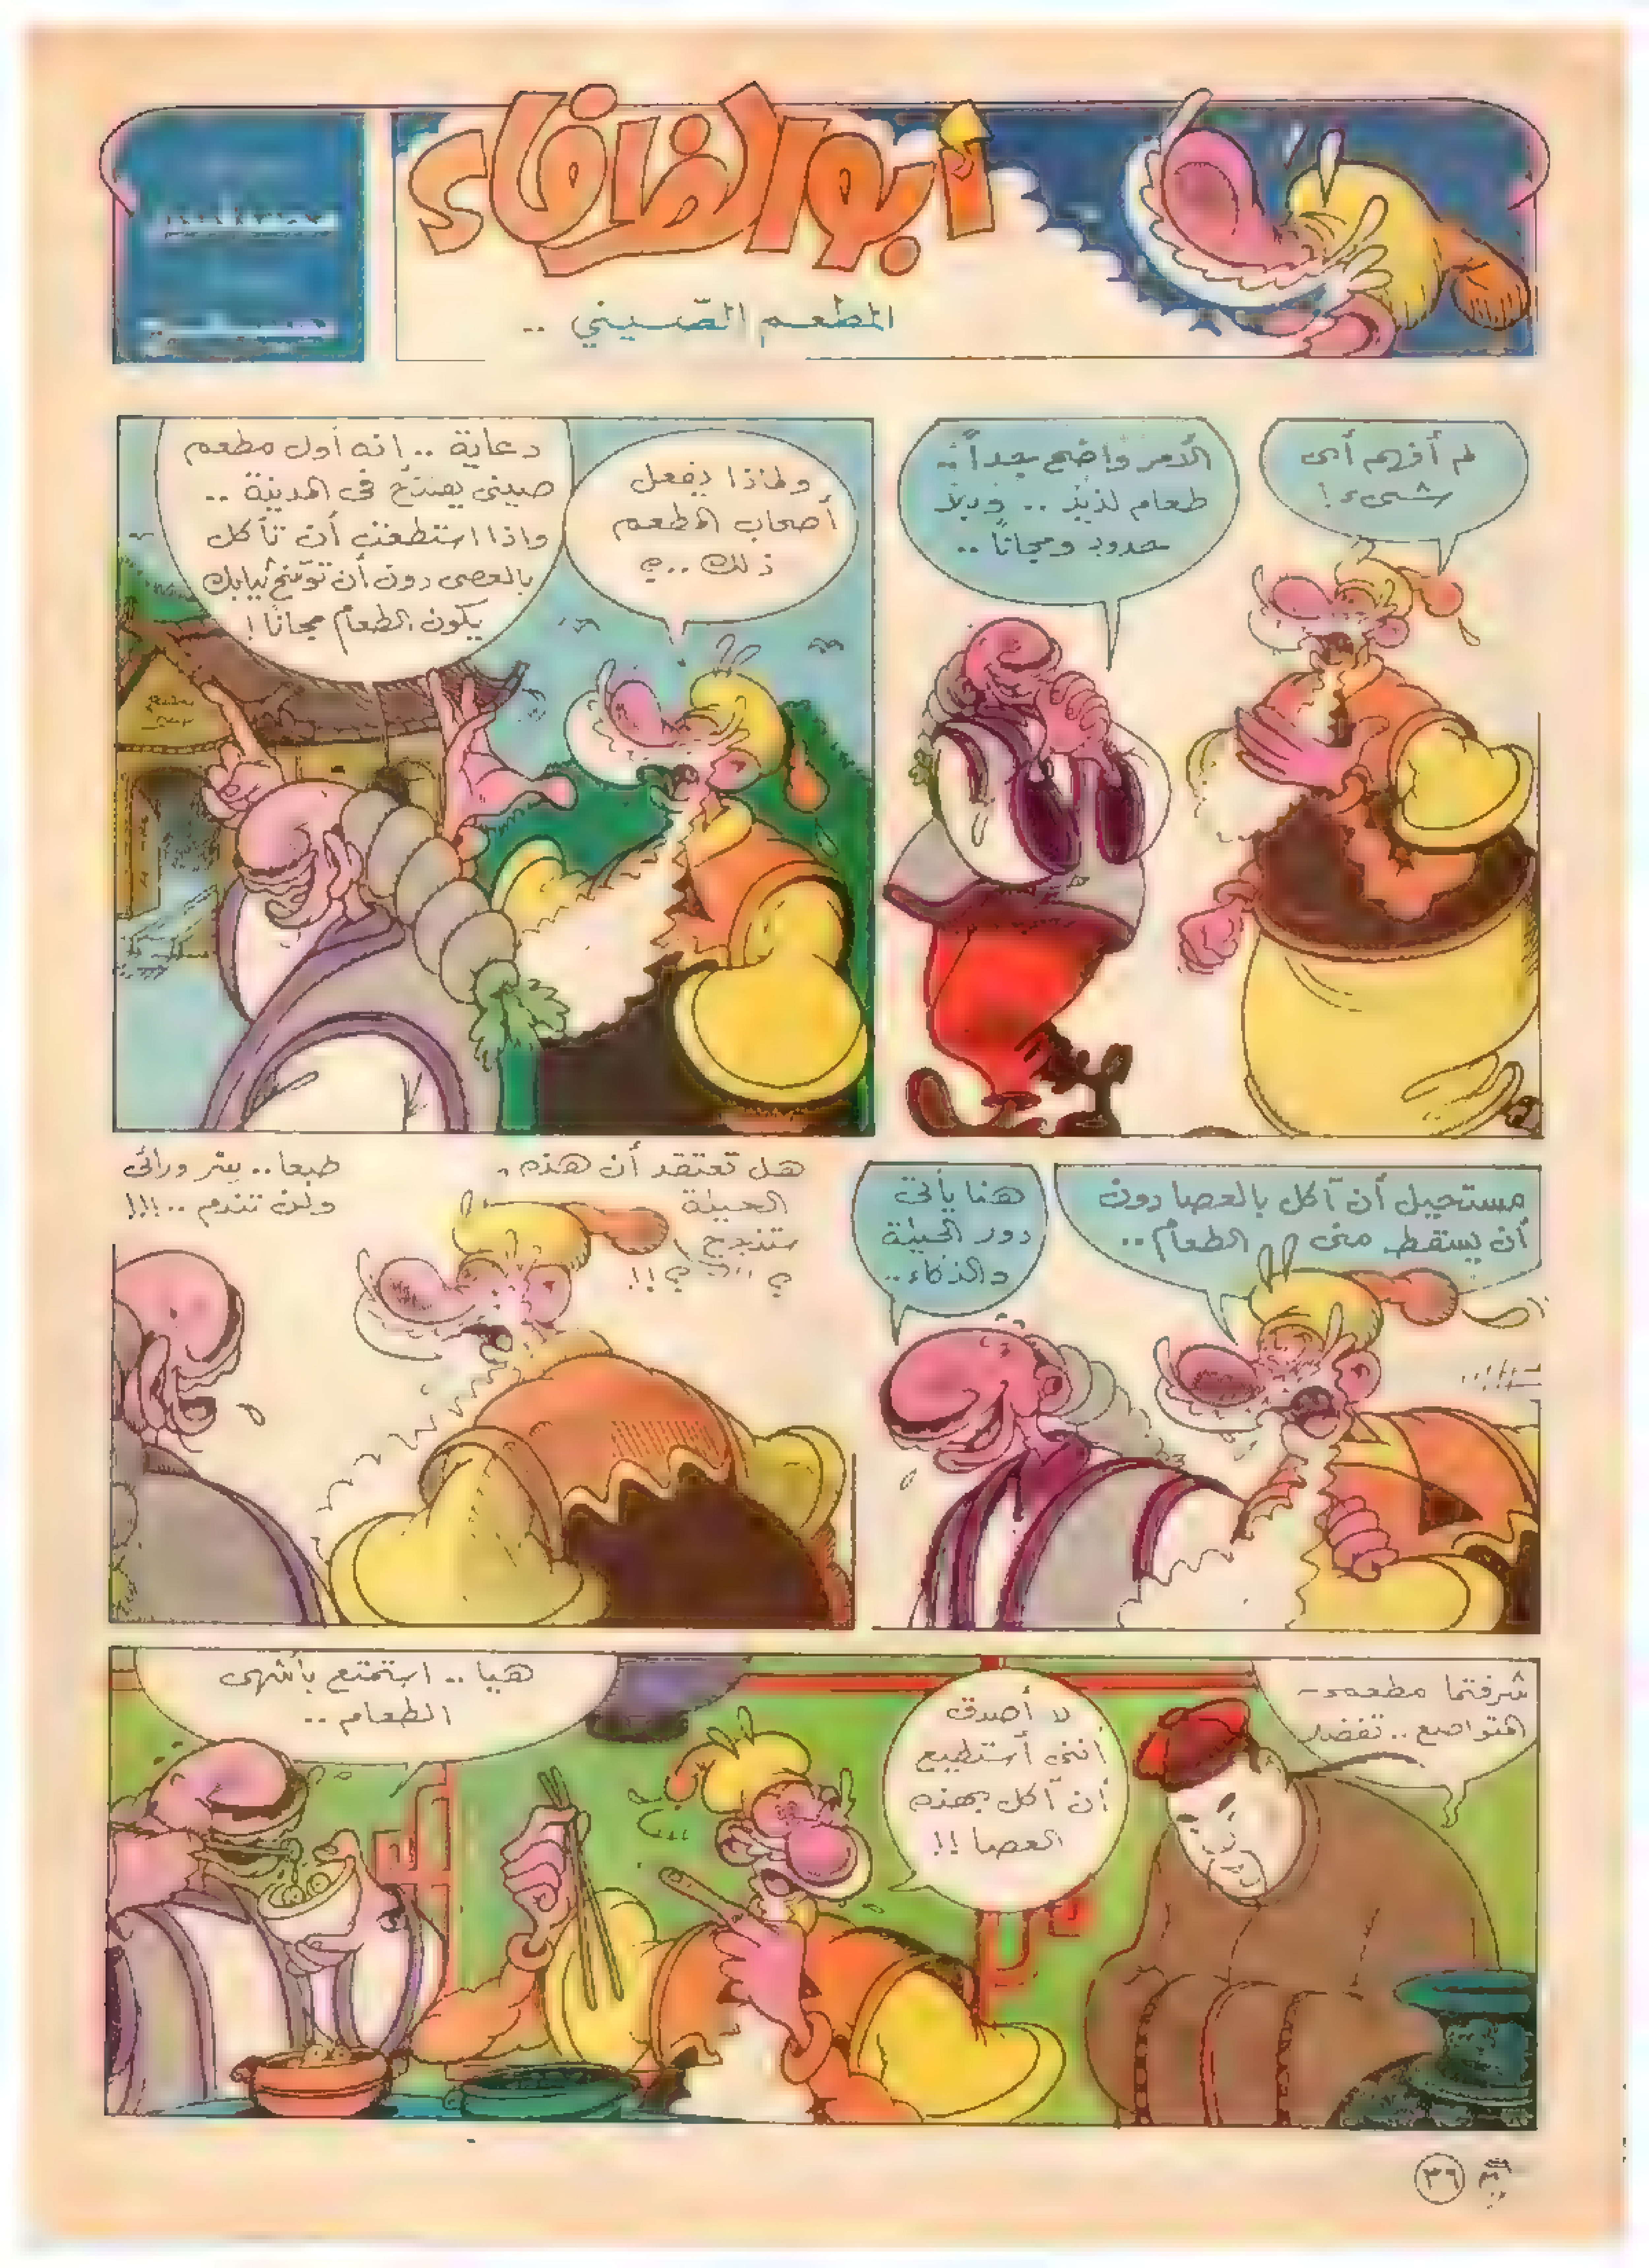 أبو الظرفاء
المطعم الصّيني ..
لم أفهم أى
شىء !
الأمر واضح جداً ..
طعام لذيذ .. وبلا
حدود ومجاناً ..
ولماذا يفعل
أصحاب المطعم
ذلك ..؟
دعاية .. انه أول مطعم
صينى يفتتح فى المدينة ..
واذا استطعت أن تأكل
بالعصى دون أن توسّخ ثيابك
يكون الطعام مجانًا !
مستحيل أن آكل بالعصا دون
أن يسقط منى الطعام ..
هنا يأتى
دور الحيلة
والذكاء ..
هل تعتقد أن هذه
الحيلة
ستنجح
؟ !! ؟ !!
طبعا .. سر ورائى
ولن تندم ..!!!
شرفتما مطعمى
المتواضع .. تفضلا
لا أصدق
اننى أستطيع
أن آكل بهذه
العصا !!
هيا .. استمتع بأشهى
الطعام ..
٣٦